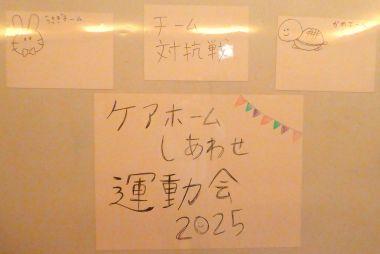 うさぎチーム
チーム
対抗戦
かめチーム
ケアホーム
しあわせ
運動会
2025